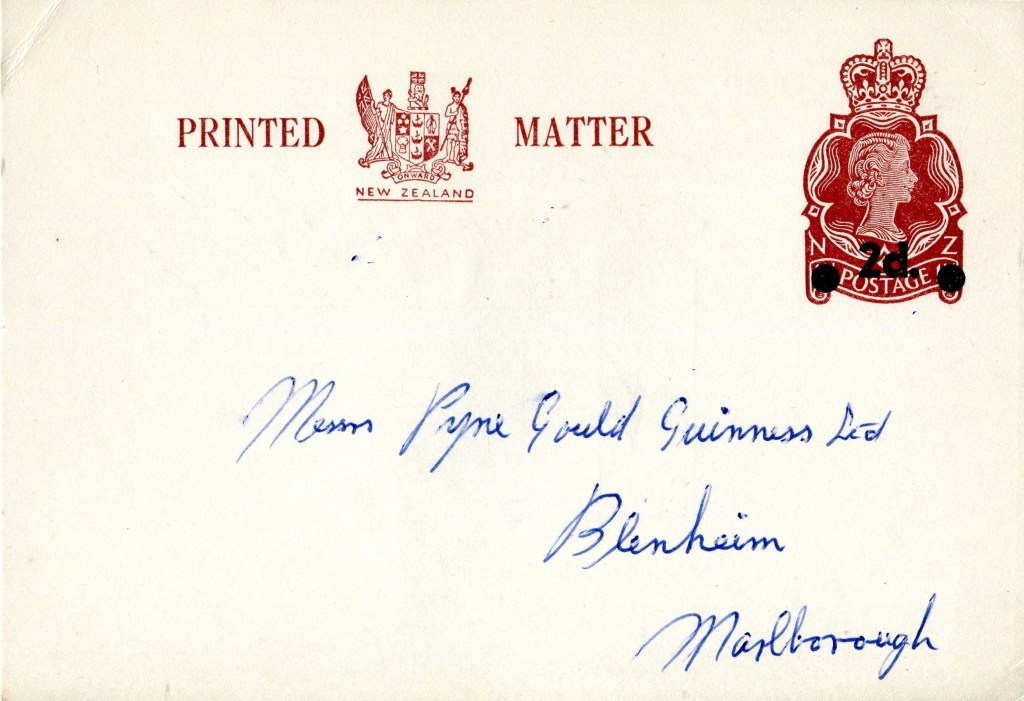 PRINTED MATTER
ONWARD
NEW ZEALAND
N Z
2d.
POSTAGE
Messrs Pyne Gould Guinness Ltd
Blenheim
Marlborough